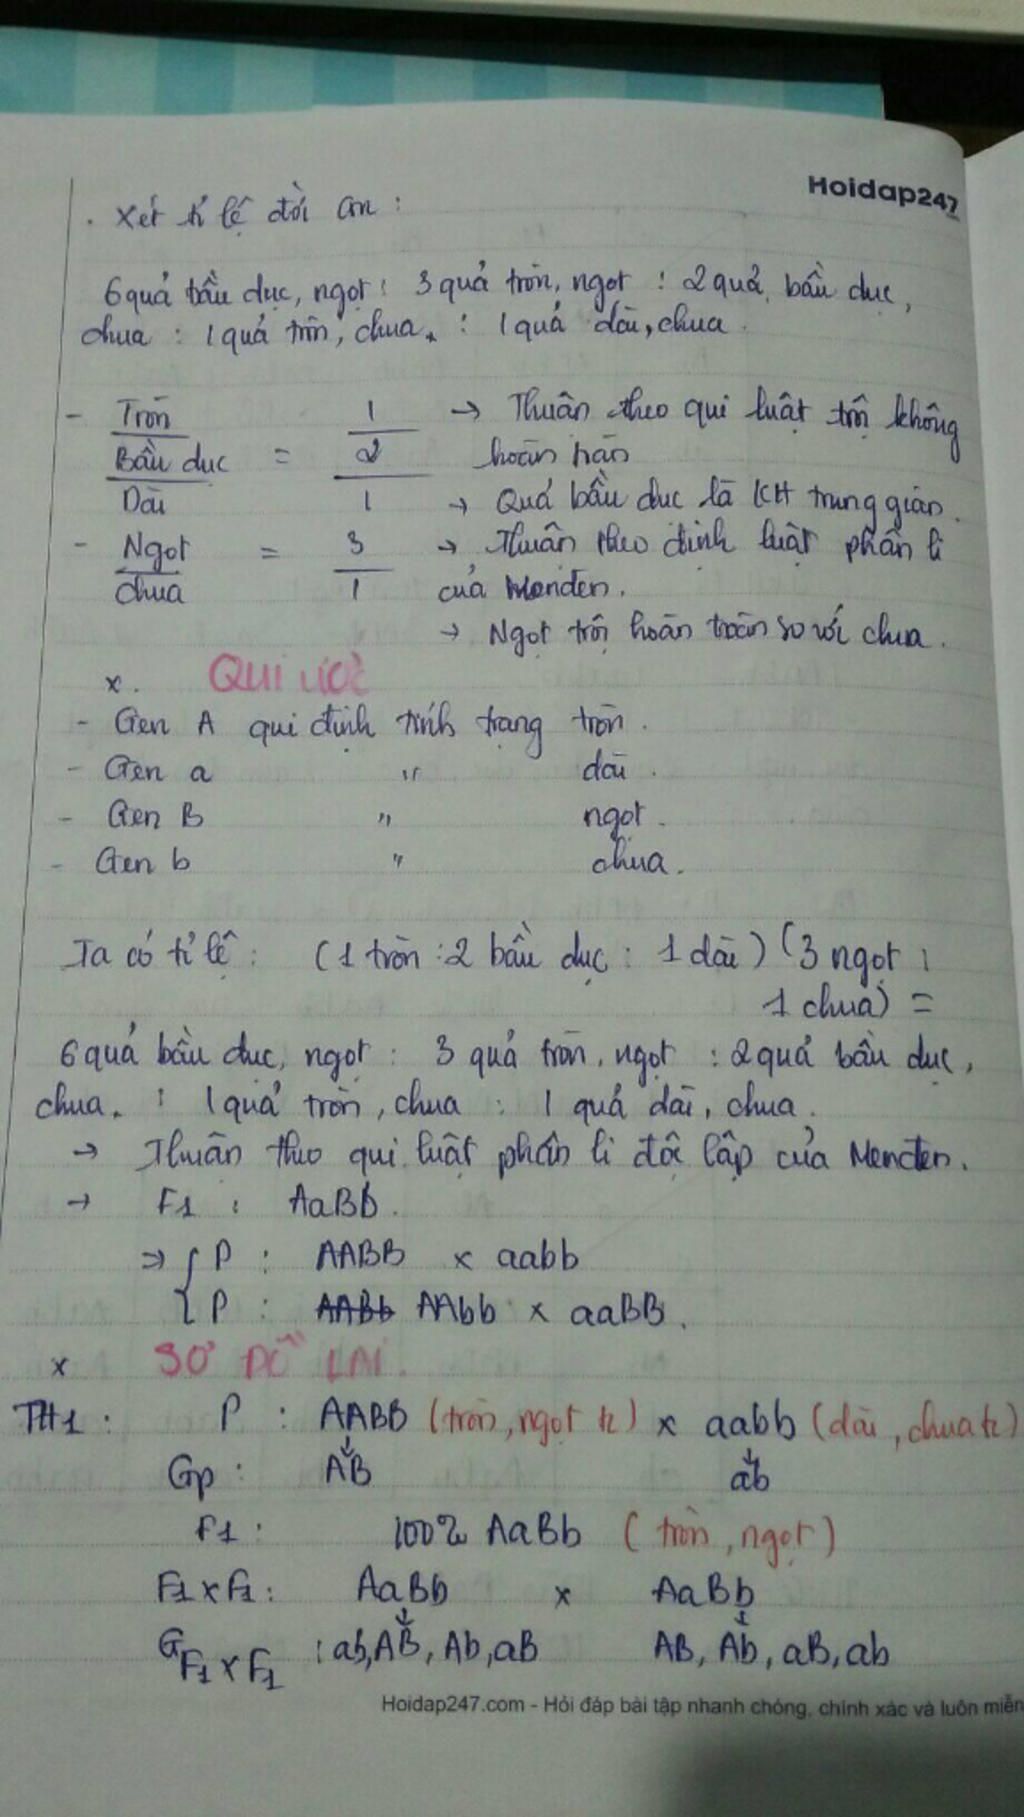 Hoidap247
. Xét tỉ lệ đời con :
6 quả bầu dục, ngọt : 3 quả tròn, ngọt : 2 quả bầu dục,
chua : 1 quả tròn, chua : 1 quả dài, chua.
- Tròn 1 → Thuân theo qui luật trội không
Bầu dục = 2 hoàn hản
Dài 1 → Quả bầu dục là KH trung gian.
- Ngọt = 3 → Thuân theo định luật phân li
chua 1 của Menđen.
→ Ngọt trội hoàn toàn so với chua.
x. QUI ƯỚC
- Gen A qui định tính trạng tròn.
- Gen a " dài.
- Gen B " ngọt.
- Gen b " chua.
Ta có tỉ lệ : (1 tròn : 2 bầu dục : 1 dài) (3 ngọt :
1 chua) =
6 quả bầu dục, ngọt : 3 quả tròn, ngọt : 2 quả bầu dục,
chua. : 1 quả tròn, chua : 1 quả dài, chua.
→ Thuân theo qui luật phân li độc lập của Menđen.
→ F1 : AaBb.
⇒ { P : AABB x aabb
P : AABb AAbb x aaBB.
x SƠ ĐỒ LAI.
TH1 : P : AABB (tròn, ngọt tc) x aabb (dài, chua tc)
Gp : AB ab
F1 : 100% AaBb (tròn, ngọt)
F1 x F1 : AaBb x AaBb
G F1 x F1 : ab, AB, Ab, aB AB, Ab, aB, ab
Hoidap247.com - Hỏi đáp bài tập nhanh chóng, chính xác và luôn miễn